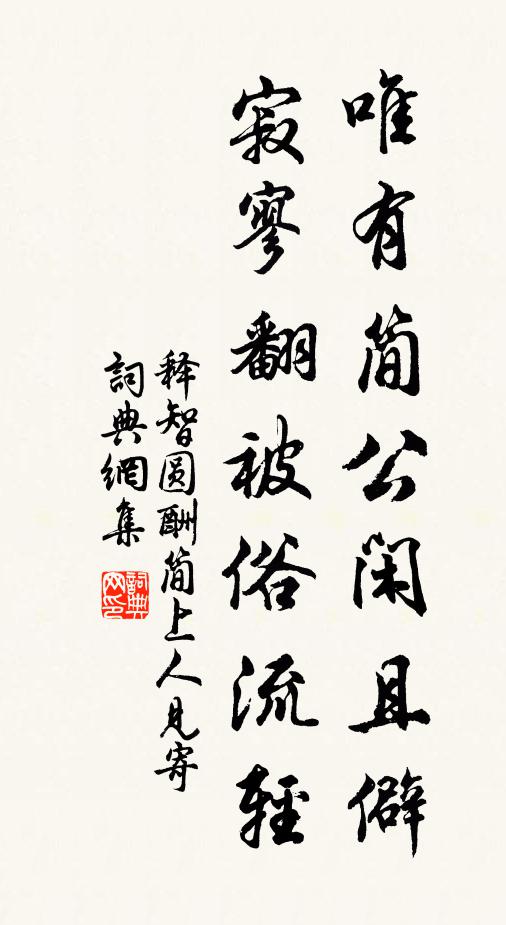 唯有简公闲且僻
寂寥翻被俗流輕
释智圆酬简上人見寄
詞典網集
詞典網印